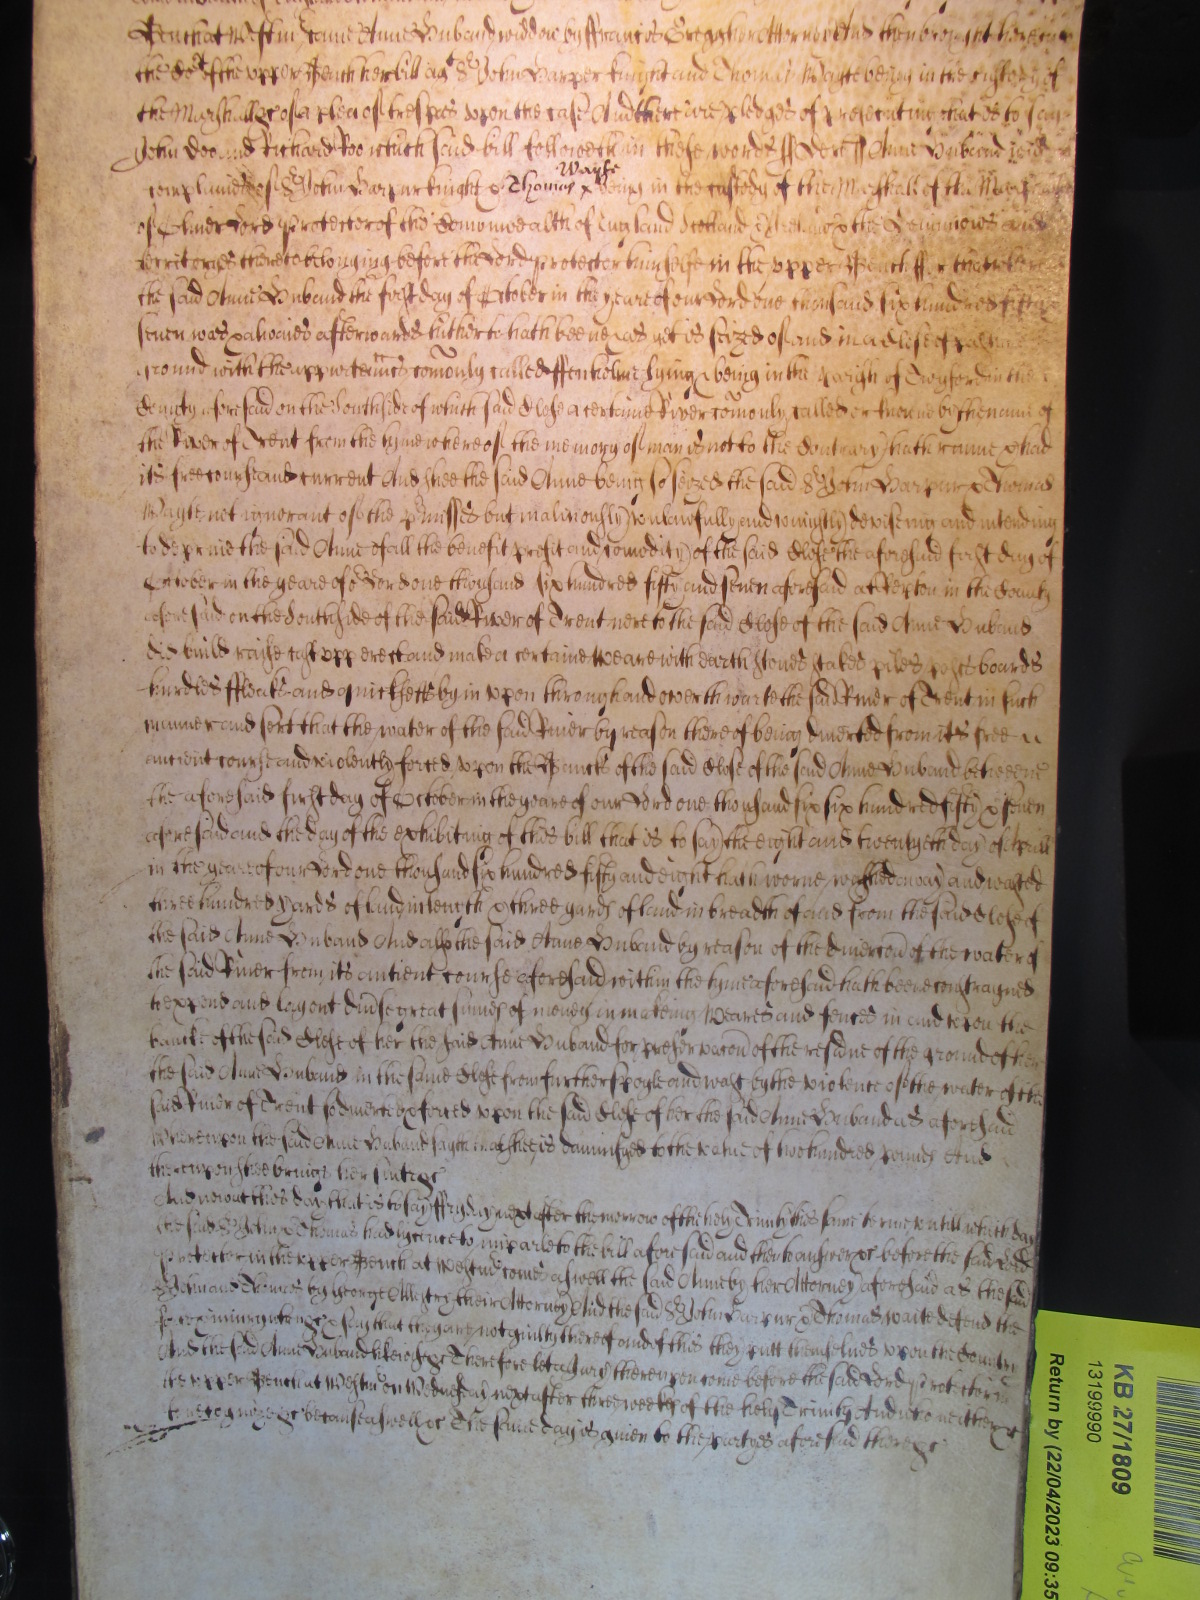 Bench at Westm came Anne Unband widdow by Francis Attorney And then brought here into
the Cort of the upper Bench her bill agt Sr John Harper knight and Thomas Wayte being in the custody of
the Marshall &c of a plea of trespas upon the case And there are pledges of prosecuting that is to say
John Doo and Richard Roo which said bill followeth in these words ss Derb ss Anne Unband widd
complaines of Sr John Harpur knight & Thomas Wayte being in the custody of the Marshall of the
of Oliver Lord Protector of the Comonwealth of England Scotland & Ireland & the Dominions and
territories thereto belonging before the Lord Protector himselfe in the upper Bench for that whereas
the said Anne Unband the first day of October in the yeare of our Lord one thousand six hundred fifty
seven was & alwaies afterwards hitherto hath beene & as yet is seized of and in a Close of pasture
ground with the appurtenncs comonly called lying & being in the parish of Twyford in the
County aforesaid on the Southside of which said Close a certaine River comonly called or knowne by the name of
the River of Trent from the tyme whereof the memory of man is not to the Contrary hath runne & had
its free course and current And shee the said Anne being so seized the said Sr John Harpur & Thomas
Wayte not ignorant of the prmisses but maliciously unlawfully and devising and intending
to deprive the said Anne of all the benefit profit and comodity of the said Close the aforesaid first day of
October in the yeare of or Lord one thousand six hundred fifty and seven aforesaid at Repton in the County
aforesaid on the Southside of the said River of Trent nere to the said Close of the said Anne Unband
did build raise cast upp erect and make a certaine Weare with earth stones stakes piles posts boards
hurdles ffleaks and quicksetts by in upon through and overthwarte the said River of Trent in such
manner and sort that the water of the said River by reason thereof being diverted from its free
antient course and violently forced upon the Bancks of the said Close of the said Anne Unband betweene
the aforesaid first day of October in the yeare of our Lord one thousand six six hundred fifty & seven
aforesaid and the day of the exhibiting of this bill that is to say the eight and twentyeth day of Aprill
in the yeare of our Lord one thousand six hundred fifty and eight hath worne washed away and wasted
three hundred yards of land in length & three yards of land in breadth of and from the said Close of
the said Anne Unband And also the said Anne Unband by reason of the divercon of the water of
the said River from its antient course aforesaid within the tyme aforesaid hath beene constrayned
to expend and layout divse great sumes of money in makeing Weares and fences in and upon the
bancke of the said Close of her the said Anne Unband for preservacon of the residue of the ground of her
the said Anne Unband in the same Close from further spoyle and wast by the violence of the water of the
said River of Trent so diverted & forced upon the said Close of her the said Anne Unband as aforesaid
Whereupon the said Anne Unband sayth that shee is damnifyed to the value of two hundred pounds And
thereupon shee brings her suite &c
And now at this day that is to say ffryday next after the morrow of the holy Trinity this same terme untill which day
the said Sr John & Thomas had lycence to imparle to the bill aforesaid and then to answer &c before the said Lord
Protector in the upper Bench at Westmr come aswell the said Anne by her Attorney aforesaid as the said
Sr John and Thomas by George Allestry their Attorney And the said Sr John Harpur & Thomas Waite defend the
force & iniury when &c & say that they are not guilty thereof and of this they putt themselves upon the Country
And the said Anne Unband likewise &c Therefore let a Jury thereupon come before the said Lord Protector in
the upper Bench at Westmr on Wednesday next after three weekes of the holy Trinity And who neither &c
to recognize &c because aswell &c The same day is given to the partyes aforesaid there &c
KB 27/1809
13199990
Return by (22/04/2023 09:35